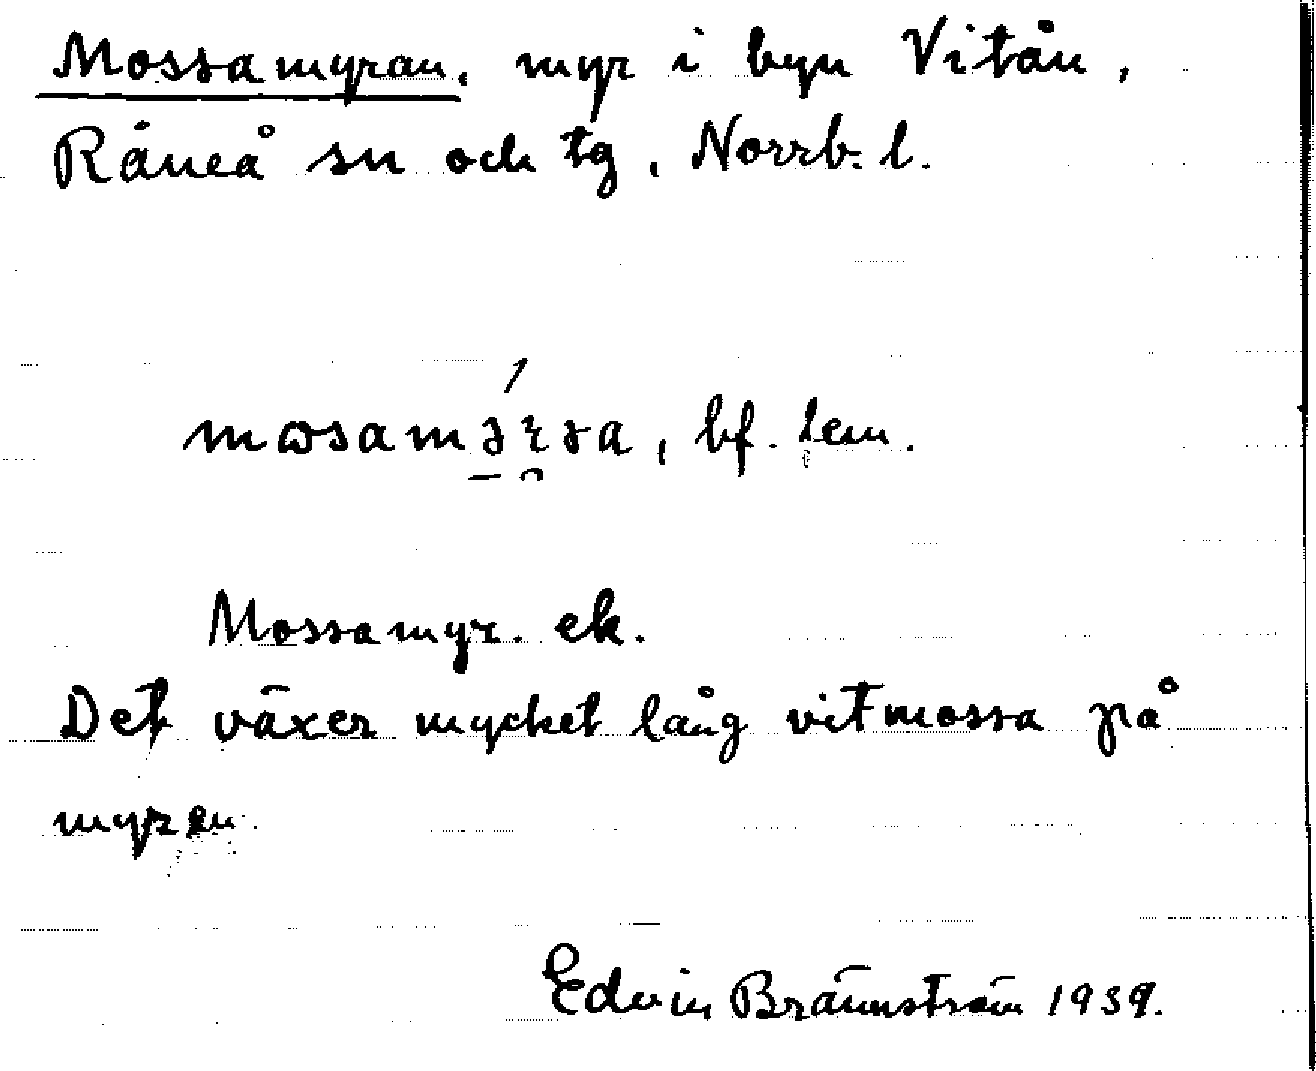 Mossamyran, myr i byn Vitån,
Råneå sn och tg, Norrb. l.
bf. fem.
Mossamyr. ek.
Det växer mycket lång vitmossa på
myren.
Edvin Brännström 1939.